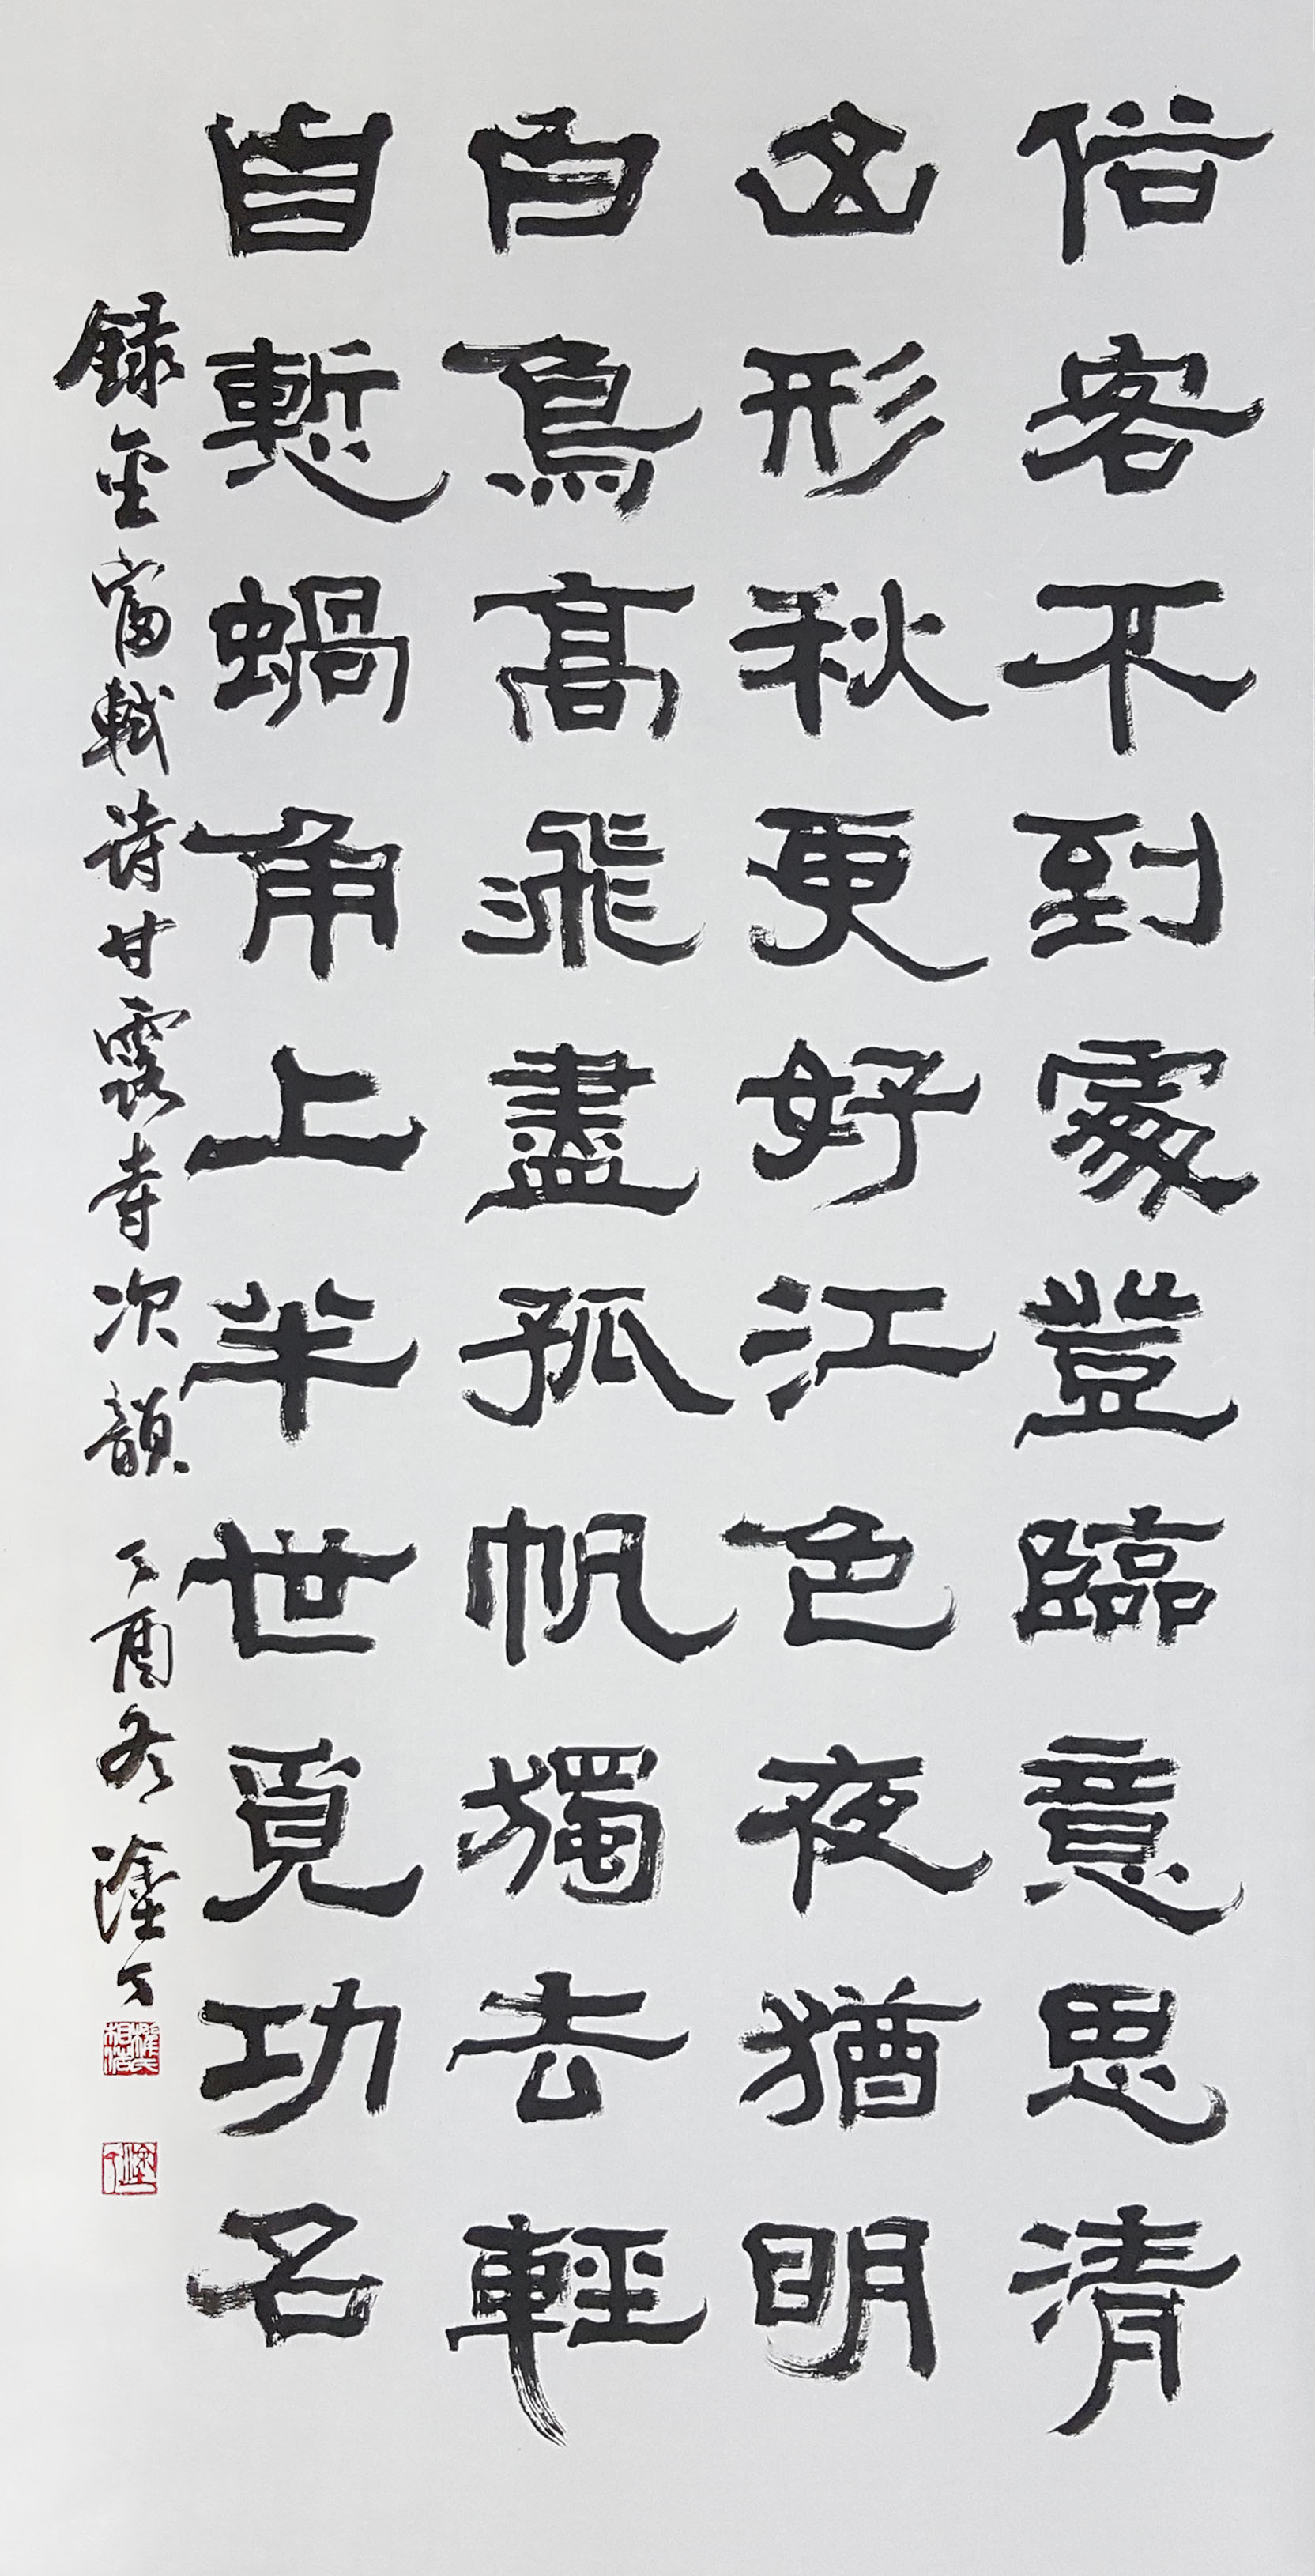 俗客不到處登臨意思清
山形秋更好江色夜猶明
白鳥高飛盡孤帆獨去輕
自慙蝸角上半世覓功名
錄金富軾詩甘露寺次韻 丁酉冬 塗丁
權氏相浩
塗丁